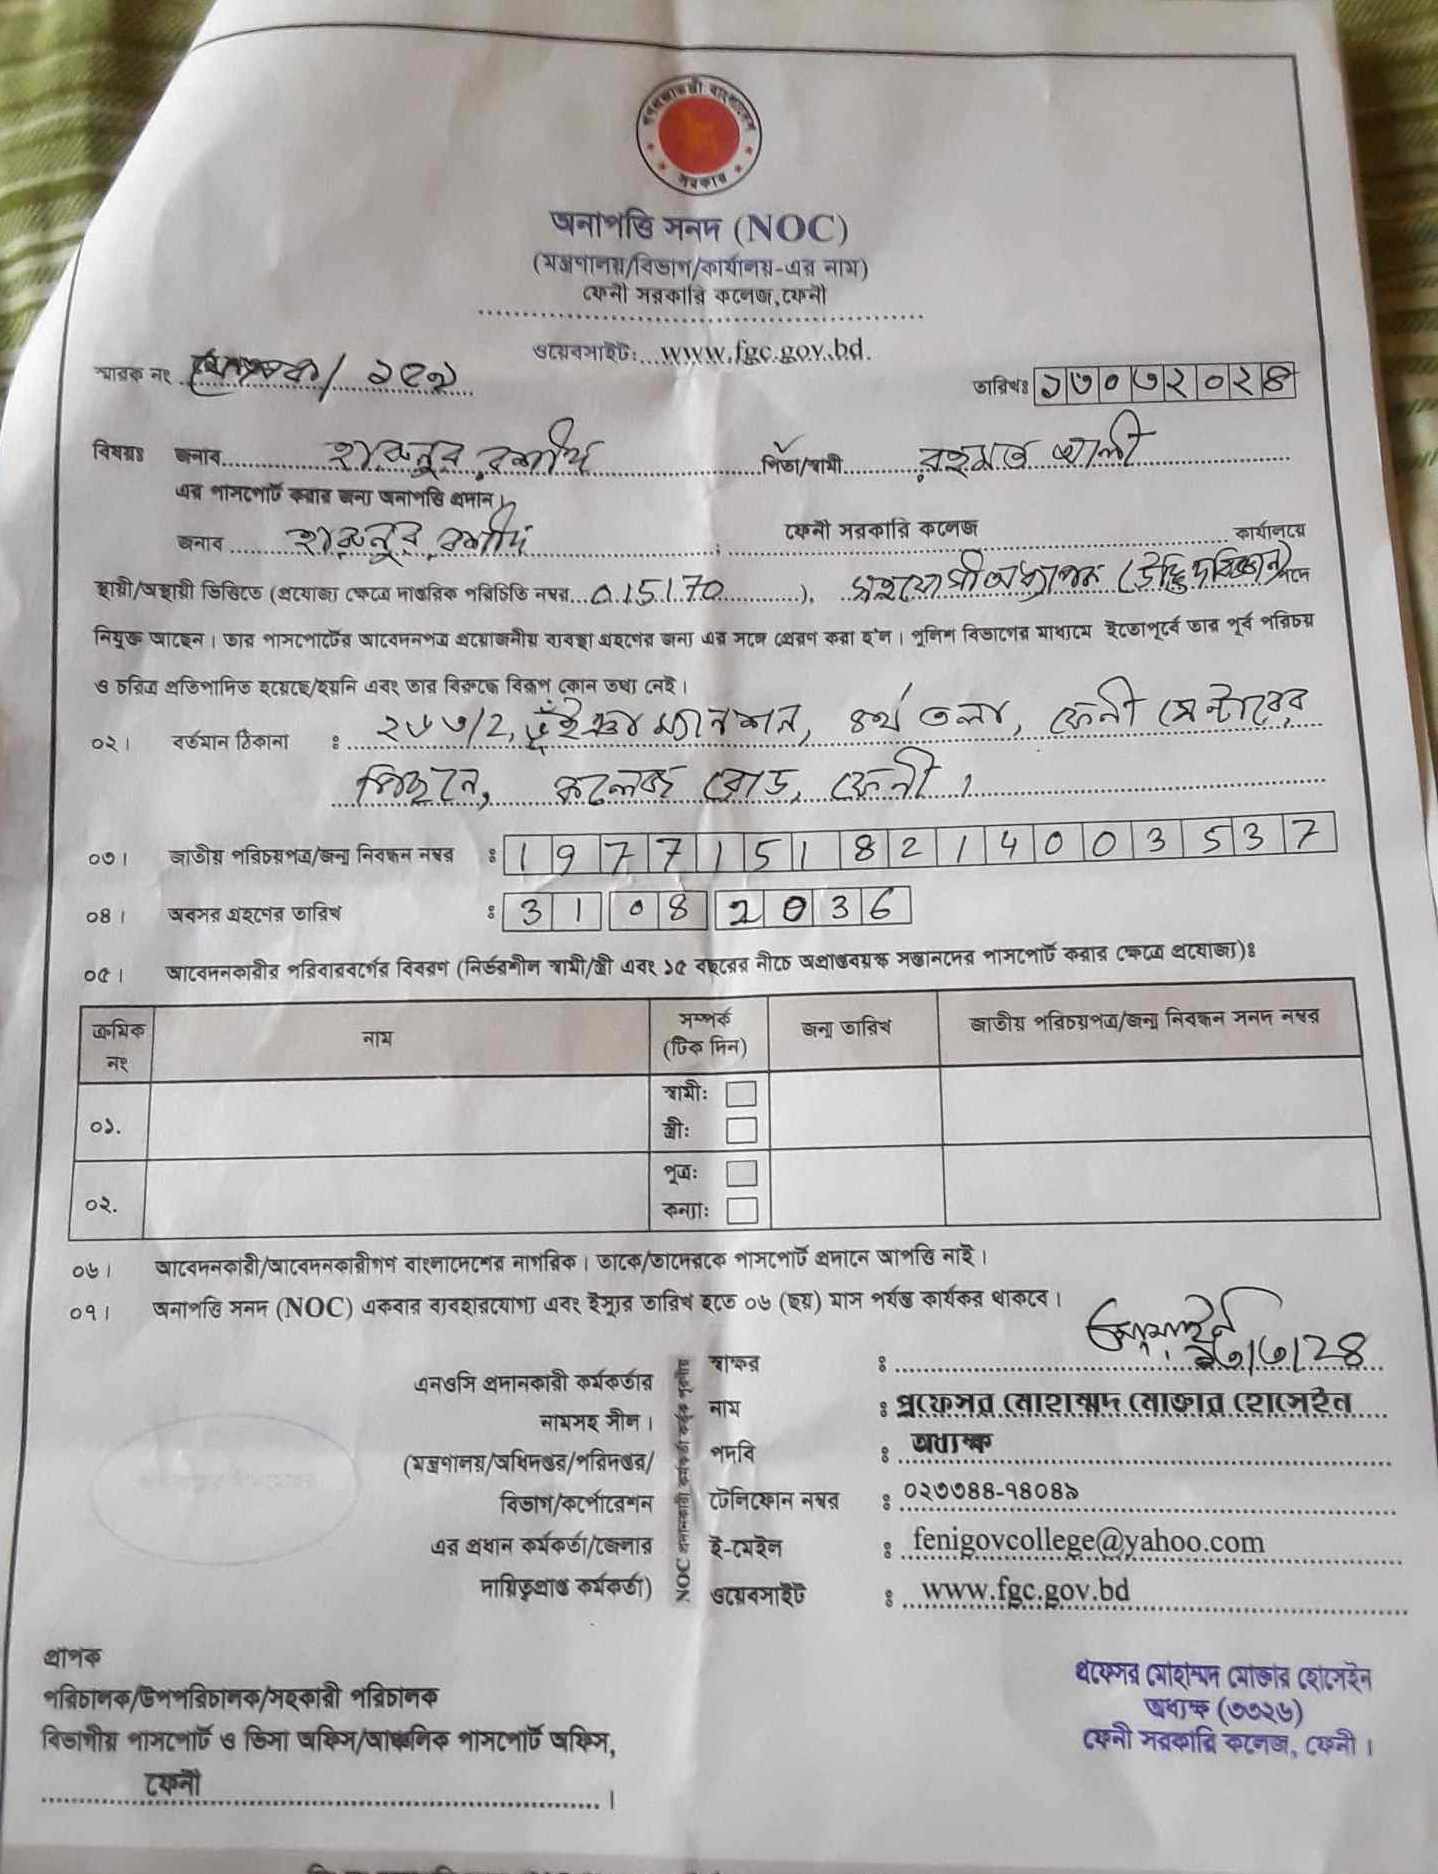 গণপ্রজাতন্ত্রী বাংলাদেশ
সরকার
অনাপত্তি সনদ (NOC)
(মন্ত্রণালয়/বিভাগ/কার্যালয়-এর নাম)
ফেনী সরকারি কলেজ,ফেনী
ওয়েবসাইট:...www.fgc.gov.bd.
স্মারক নং
তারিখঃ ১৩০৩২০২৪
বিষয়ঃ জনাব হারুনুর রশীদ পিতা/স্বামী রহমত আলী
এর পাসপোর্ট করার জন্য অনাপত্তি প্রদান।
জনাব হারুনুর রশীদ ফেনী সরকারি কলেজ কার্যালয়ে
স্থায়ী/অস্থায়ী ভিত্তিতে (প্রযোজ্য ক্ষেত্রে দাপ্তরিক পরিচিতি নম্বর 015170), সহযোগী অধ্যাপক (উদ্ভিদবিজ্ঞান) পদে
নিযুক্ত আছেন। তার পাসপোর্টের আবেদনপত্র প্রয়োজনীয় ব্যবস্থা গ্রহণের জন্য এর সঙ্গে প্রেরণ করা হ'ল। পুলিশ বিভাগের মাধ্যমে ইতোপূর্বে তার পূর্ব পরিচয়
ও চরিত্র প্রতিপাদিত হয়েছে/হয়নি এবং তার বিরুদ্ধে বিরূপ কোন তথ্য নেই।
০২। বর্তমান ঠিকানা ঃ ২৬৩/2, ভূঁইঞা ম্যানশন, ৪র্থ তলা, ফেনী সেন্টারের
পিছনে, কলেজ রোড, ফেনী।
০৩। জাতীয় পরিচয়পত্র/জন্ম নিবন্ধন নম্বর ঃ 19771518214003537
০৪। অবসর গ্রহণের তারিখ ঃ 31 08 2036
০৫। আবেদনকারীর পরিবারবর্গের বিবরণ (নির্ভরশীল স্বামী/স্ত্রী এবং ১৫ বছরের নীচে অপ্রাপ্তবয়স্ক সন্তানদের পাসপোর্ট করার ক্ষেত্রে প্রযোজ্য)ঃ
ক্রমিক নং নাম সম্পর্ক (টিক দিন) জন্ম তারিখ জাতীয় পরিচয়পত্র/জন্ম নিবন্ধন সনদ নম্বর
০১. স্বামী:
স্ত্রী:
০২. পুত্র:
কন্যা:
০৬। আবেদনকারী/আবেদনকারীগণ বাংলাদেশের নাগরিক। তাকে/তাদেরকে পাসপোর্ট প্রদানে আপত্তি নাই।
০৭। অনাপত্তি সনদ (NOC) একবার ব্যবহারযোগ্য এবং ইস্যুর তারিখ হতে ০৬ (ছয়) মাস পর্যন্ত কার্যকর থাকবে।
এনওসি প্রদানকারী কর্মকর্তার
নামসহ সীল।
(মন্ত্রণালয়/অধিদপ্তর/পরিদপ্তর/
বিভাগ/কর্পোরেশন
এর প্রধান কর্মকর্তা/জেলার
দায়িত্বপ্রাপ্ত কর্মকর্তা)
NOC প্রদানকারী কর্মকর্তা কর্তৃক পূরণীয়
স্বাক্ষর ঃ
নাম ঃ প্রফেসর মোহাম্মদ মোক্তার হোসেইন
পদবি ঃ অধ্যক্ষ
টেলিফোন নম্বর ঃ ০২৩৩৪৪-৭৪০৪৯
ই-মেইল ঃ fenigovcollege@yahoo.com
ওয়েবসাইট ঃ www.fgc.gov.bd
প্রাপক
পরিচালক/উপপরিচালক/সহকারী পরিচালক
বিভাগীয় পাসপোর্ট ও ভিসা অফিস/আঞ্চলিক পাসপোর্ট অফিস,
ফেনী।
প্রফেসর মোহাম্মদ মোক্তার হোসেইন
অধ্যক্ষ (৩৩২৬)
ফেনী সরকারি কলেজ, ফেনী।